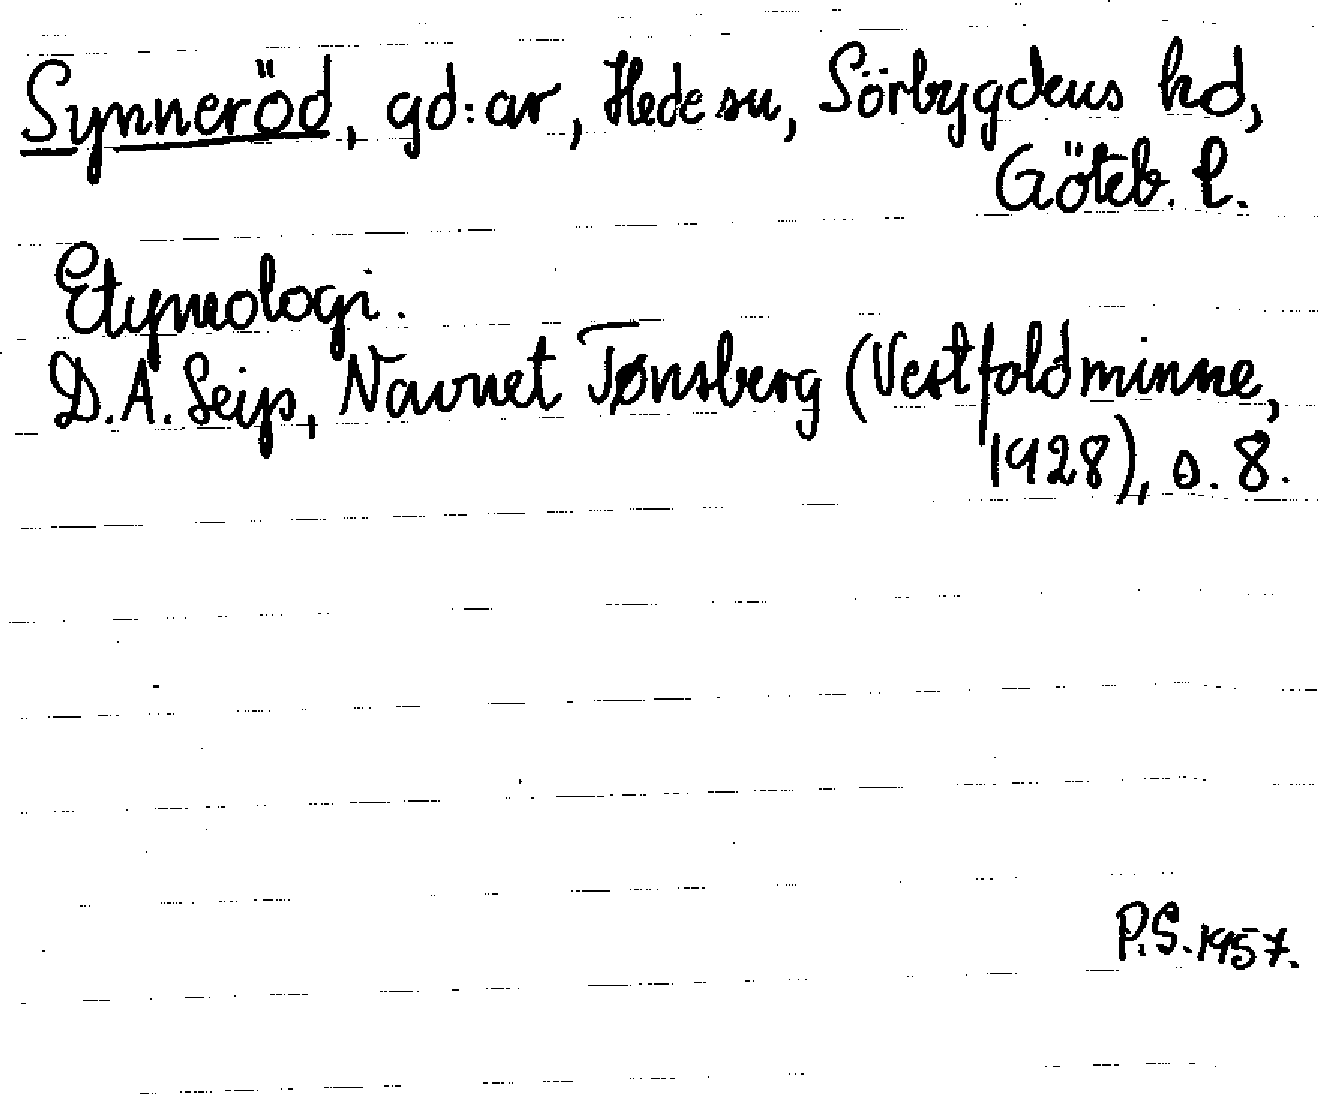 Synneröd, gd:ar, Hede sn, Sörbygdens hd,
Göteb. l.
Etymologi.
D. A. Seip, Navnet Tønsberg (Vestfoldminne,
1928), s. 8.
P.S. 1957.